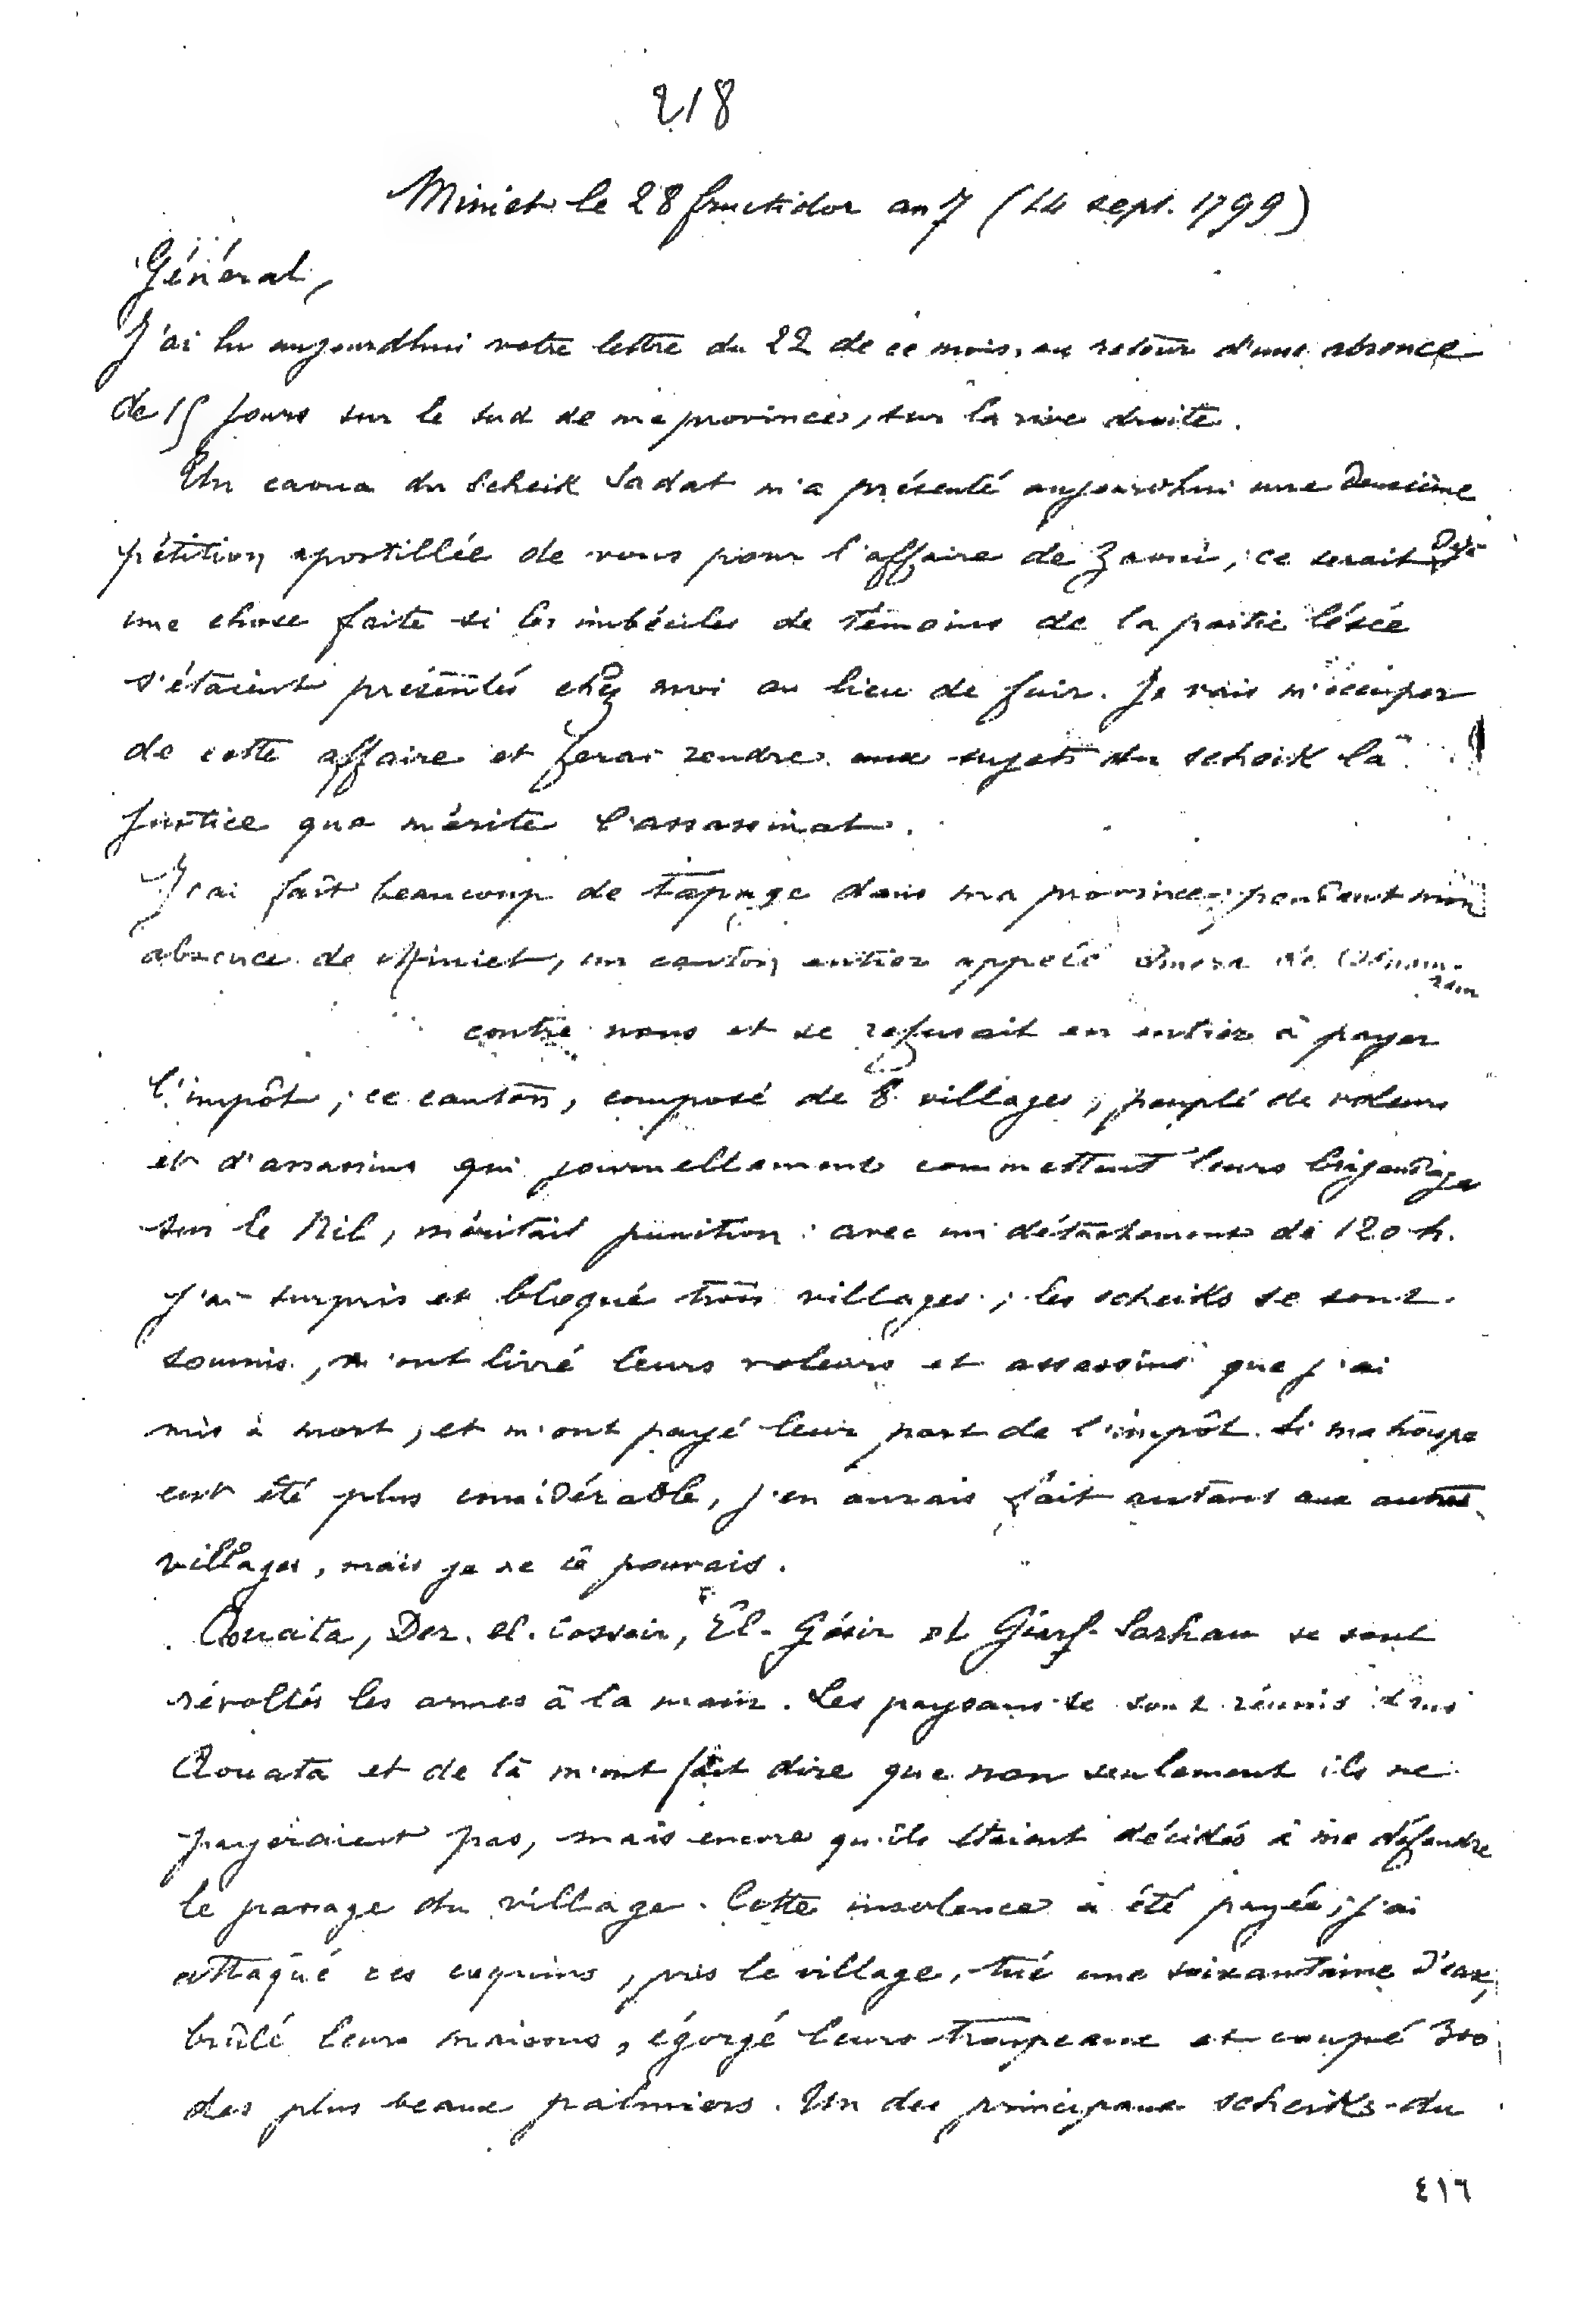 218
Miniet le 28 fructidor an 7 (14 sept. 1799)
Général,
J'ai lu aujourdhui votre lettre du 22 de ce mois, au retour d'une absence
de 15 jours sur le sud de ma province, sur la rive droite.
Un caoua du Scheik Sadat m'a présenté aujourdhui une deuxième
pétition apostillée de vous pour l'affaire de Zaoui, ce serait déjà
une chose faite si les imbéciles de témoins de la partie lésée
s'étaient présentés chez moi au lieu de fuir. Je vais m'occuper
de cette affaire et ferai rendre aux sujets du scheik la
justice que mérite l'assassinat.
J'ai fait beaucoup de tapage dans ma province; pendant mon
absence de Miniet, un canton entier appelé
contre nous et se refusait en entier à payer
l'impôt; ce canton, composé de 8 villages, peuplé de voleurs
et d'assassins qui journellement commettent leurs brigandages
sur le Nil, méritait punition: avec un détachement de 120 h.
j'ai surpris et bloqué trois villages; les scheiks se sont
soumis, m'ont livré leurs voleurs et assassins que j'ai
mis à mort, et m'ont payé leur part de l'impôt. Si ma troupe
eut été plus considérable, j'en aurais fait autant aux autres
villages, mais je ne le pouvais.
Aouata, Der. el. Cossair, El-Gésir et Giarf-Sarhan se sont
révoltés les armes à la main. Les paysans se sont réunis dans
Aouata et de là m'ont fait dire que non seulement ils ne
payeraient pas, mais encore qu'ils étaient décidés à me défendre
le passage du village. Cette insolence a été payée; j'ai
attaqué ces coquins, pris le village, tué une soixantaine d'eux,
brûlé leurs maisons, égorgé leurs troupeaux et coupé 300
des plus beaux palmiers. Un des principaux scheiks du
٤١٦